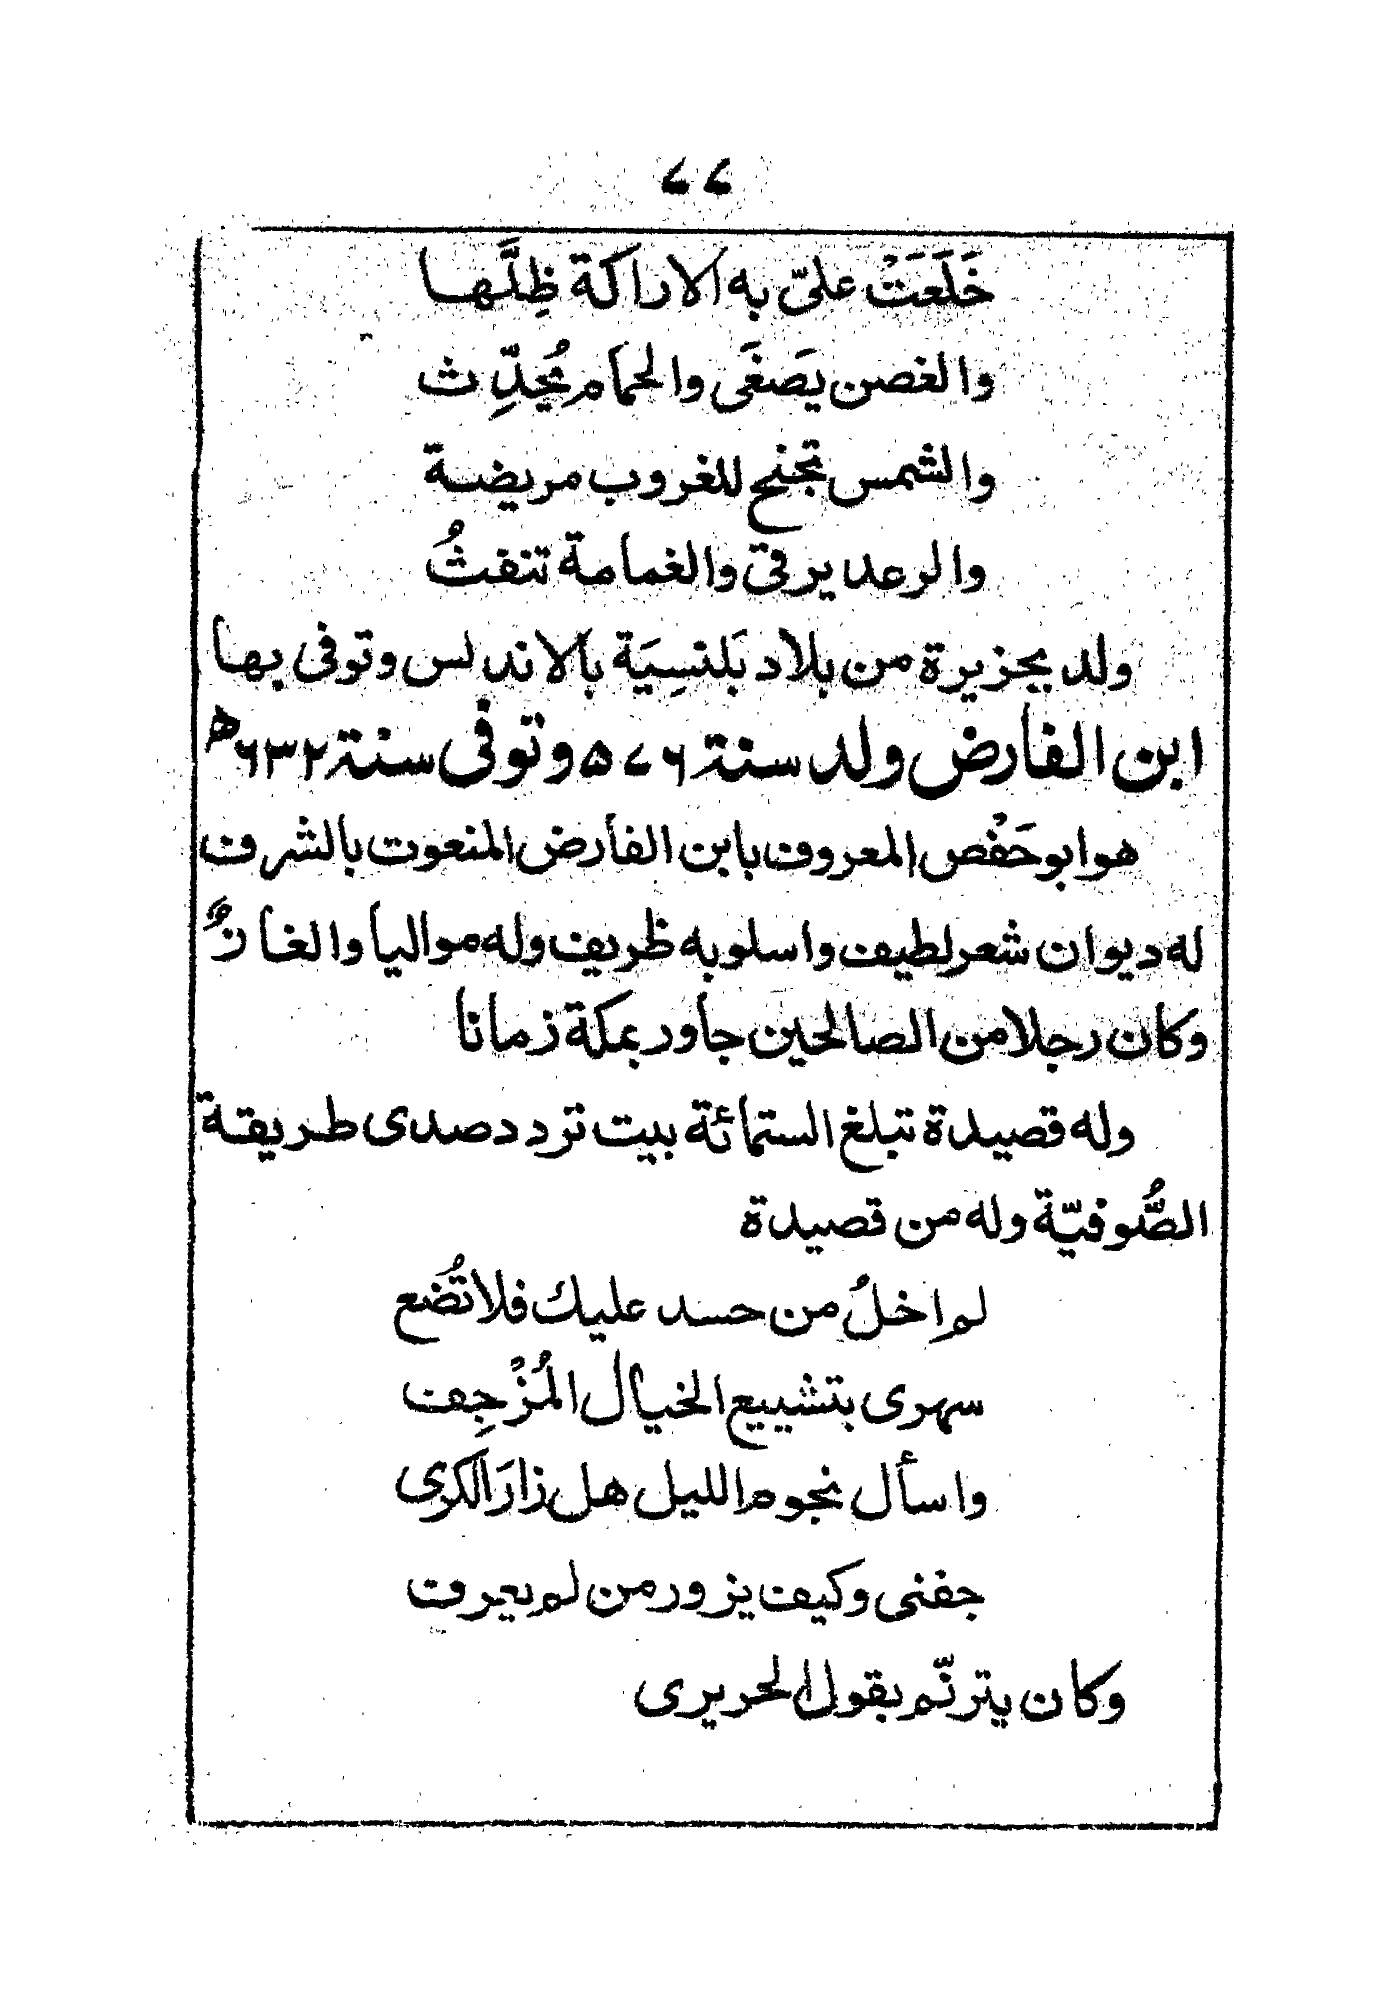 ۷۷
خَلَعَتْ علىّ به الاراكة ظِلَّها
والغصن يَصغَى والحمام يُحدِّث
والشمس تجنح للغروب مريضة
والرعد يرقى والغمامة تنفثُ
ولد بجزيرة من بلاد بَلنسِيَة بالاندلس وتوفى بها
ابن الفارض ولد سنة ۵۷۶ وتوفى سنة ۶۳۲ھ
هو ابو حَفْص المعروف بابن الفارض المنعوت بالشرف
له ديوان شعر لطيف واسلوبه ظريف وله مواليا والغازٌ
وكان رجلا من الصالحين جاور بمكة زمانا
وله قصيدة تبلغ الستمائة بيت تردد صدى طريقة
الصُّوفيّة وله من قصيدة
لم اخلُ من حسد عليك فلا تُضع
سهرى بتشييع الخيال المُرْجِف
واسأل نجوم الليل هل زارَ الكرى
جفنى وكيف يزور من لم يعرف
وكان يترنّم بقول الحريرى